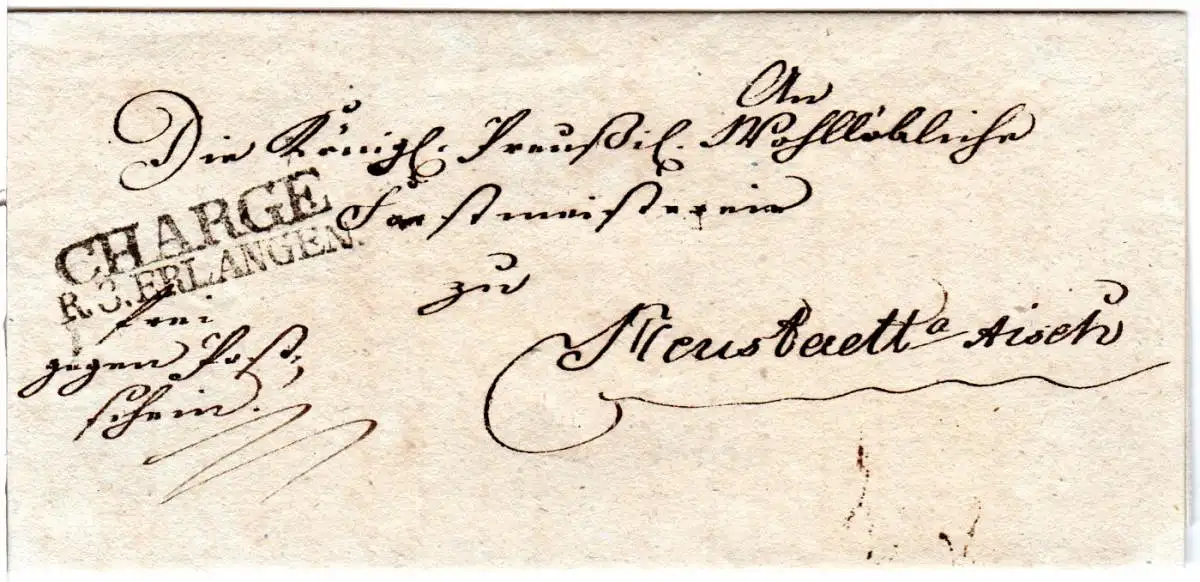 An
Die Königl. Preußil. Wohllöbliche
Forstmeisterei
zu
Neustadt a Aisch
CHARGE
R.3.ERLANGEN.
frei
gegen Post-
schein.